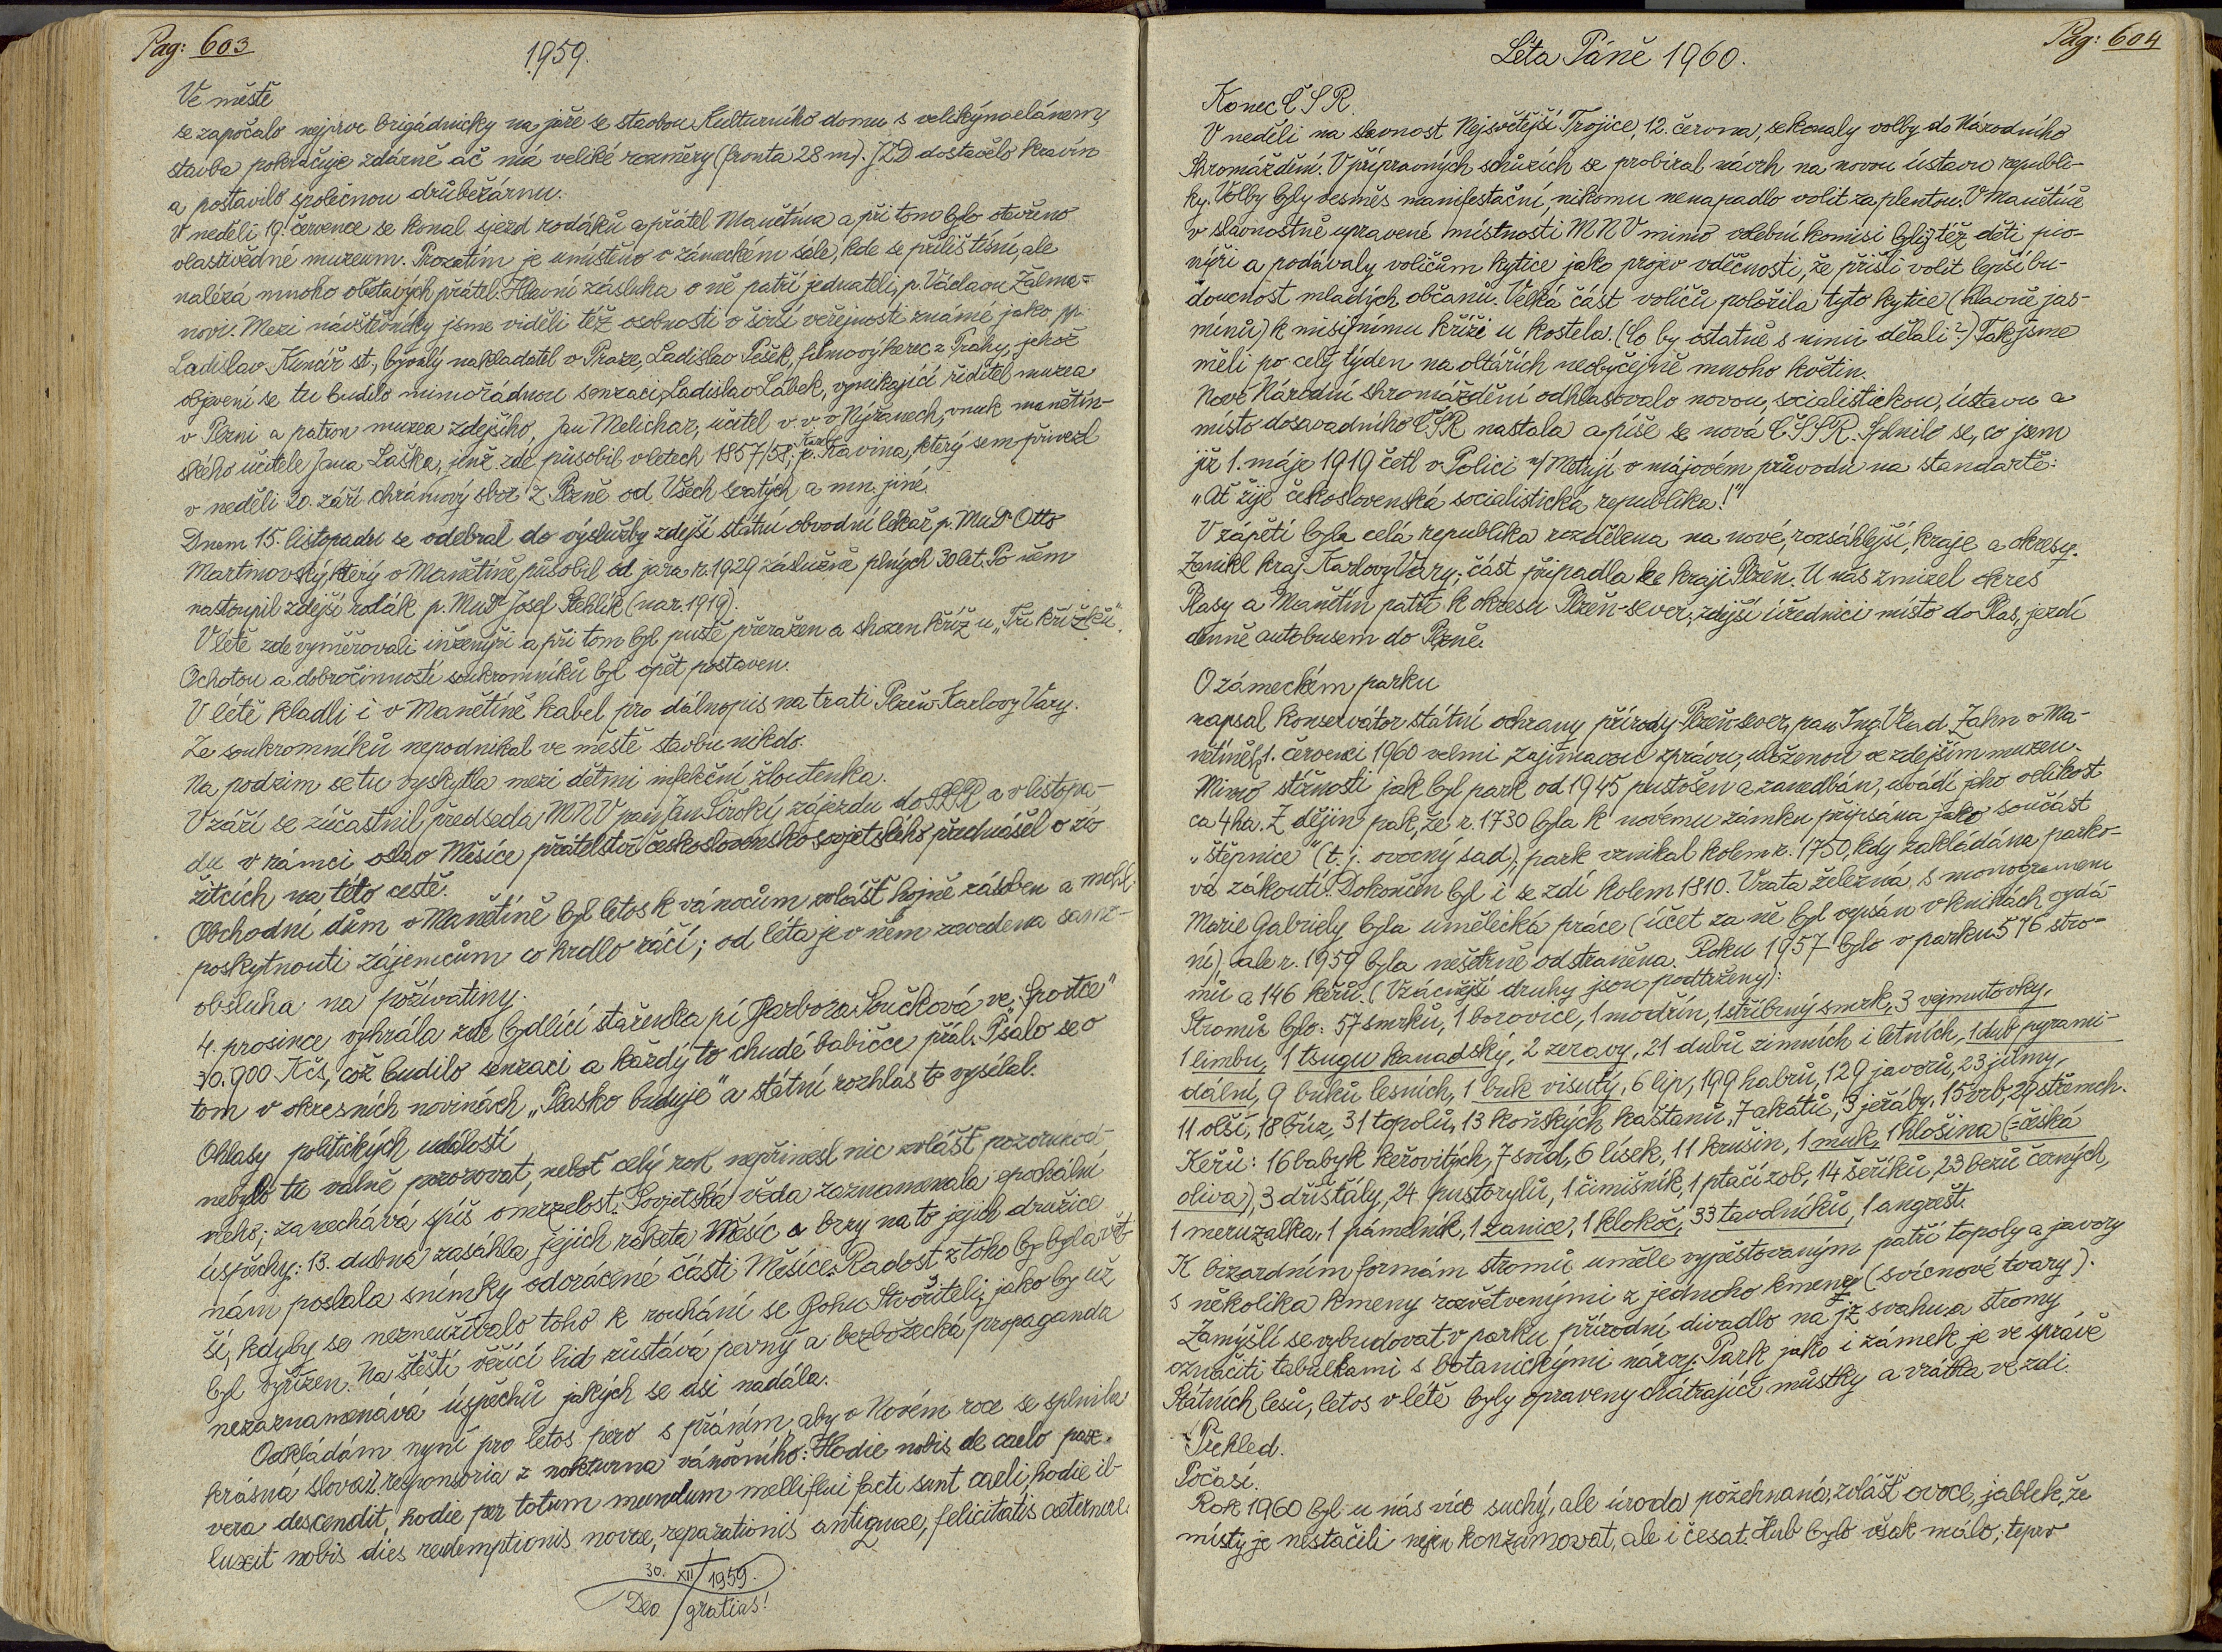 Pag: 603
1959.
Ve městě
se započalo nejprve brigádnicky na jaře se stavbou Kulturního domu s velikým elánem,
stavba pokračuje zdárně ač má veliké rozměry (fronta 28 m). JZD dostavělo kravín
a postavilo společnou drůbežárnu.
V neděli 19. července se konal sjezd rodáků a přátel Manětína a při tom bylo otevřeno
vlastivědné muzeum. Prozatím je umístěno v zámeckém sále, kde se příliš tísní, ale
nalézá mnoho obětavých přátel. Hlavní zásluha o ně patří jednateli, p. Václavu Žalma-
novi. Mezi návštěvníky jsme viděli též osobnosti v širší veřejnosti známé jako pp.
Ladislav Kuncíř st., bývalý nakladatel v Praze, Ladislav Pešek, filmový herec z Prahy, jehož
objevení se tu budilo mimořádnou senzaci, Ladislav Lábek, vynikající ředitel muzea
v Plzni a patron muzea zdejšího, Jan Melichar, učitel v. v. v Nýřanech, vnuk manětín-
ského učitele Jana Laška, jenž zde působil v letech 1857/58, p. Karel Kavina, který sem přivezl
v neděli 20. září chrámový sbor z Plzně od Všech svatých a mn. jiné.
Dnem 15. listopadu se odebral do výslužby zdejší státní obvodní lékař p. MuDr Otto
Martinovský, který v Manětíně působil od jara r. 1929 záslužně plných 30 let. Po něm
nastoupil zdejší rodák p. MuDr Josef Stehlík (nar. 1919).
V létě zde vyměřovali inženýři a při tom byl pustě přeražen a shozen kříž u „Tří křížků“.
Ochotou a dobročinností soukromníků byl opět postaven.
V létě kladli i v Manětíně kabel pro dálnopis na trati Plzeň-Karlovy Vary.
Ze soukromníků nepodnikal ve městě stavbu nikdo.
Na podzim se tu vyskytla mezi dětmi infekční žloutenka.
V září se zúčastnil předseda MNV pan Jan Široký zájezdu do SSSR a v listopa-
du v rámci oslav Měsíce přátelství československo-sovjetského přednášel o zá-
žitcích na této cestě.
Obchodní dům v Manětíně byl letos k vánocům zvlášť hojně zásoben a mohl
poskytnouti zájemcům co hrdlo ráčí; od léta je v něm zavedena samo-
obsluha na poživatiny.
4. prosince vyhrála zde bydlící stařenka pí Barbora Součková ve „Sportce“
30.900 Kčs, což budilo senzaci a každý to chudé babičce přál. Psalo se o
tom v okresních novinách „Plasko buduje“ a státní rozhlas to vysílal.
Ohlasy politických událostí
nebylo tu valně pozorovat, neboť celý rok nepřinesl nic zvlášť pozoruhod-
ného; zanechává spíš omrzelost. Sovjetská věda zaznamenala epochální
úspěchy: 13. dubna zasáhla jejich raketa Měsíc a brzy na to jejich družice
nám poslala snímky odvrácené části Měsíce. Radost z toho by byla vět-
ší, kdyby se nezneužívalo toho k rouhání se Bohu Stvořiteli, jako by už
byl vyřízen. Na štěstí věřící lid zůstává pevný a bezbožecká propaganda
nezaznamenává úspěchů jakých se asi nadála.
Odkládám nyní pro letos pero s přáním, aby v Novém roce se splnila
krásná slova z responsoria z nokturna vánočního: Hodie nobis de caelo pax
vera descendit, hodie per totum mundum melliflui facti sunt caeli, hodie il-
luxit nobis dies redemptionis novae, reparationis antiquae, felicitatis aeternae.
30. XII 1959.
Deo gratias!
Pag: 604
Léta Páně 1960.
Konec ČSR.
V neděli na slavnost Nejsvětější Trojice, 12. června, se konaly volby do Národního
shromáždění. V přípravných schůzích se probíral návrh na novou ústavu republi-
ky. Volby byly vesměs manifestační, nikomu nenapadlo volit za plentou. V Manětíně
v slavnostně upravené místnosti MNV mimo volební komisi byly též děti pio-
nýři a podávaly voličům kytice jako projev vděčnosti, že přišli volit lepší bu-
doucnost mladých občanů. Velká část voličů položila tyto kytice (hlavně jas-
mínů) k misijnímu kříži u kostela. (Co by ostatně s nimi dělali?) Tak jsme
měli po celý týden na oltářích neobyčejně mnoho květin.
Nové Národní shromáždění odhlasovalo novou, socialistickou, ústavu a
místo dosavadního ČSR nastala a píše se nová ČSSR. Splnilo se, co jsem
již 1. máje 1919 četl v Polici n/Metují v májovém průvodu na standartě:
„Ať žije československá socialistická republika!“
V zápětí byla celá republika rozdělena na nové, rozsáhlejší, kraje a okresy.
Zanikl kraj Karlovy Vary; část připadla ke kraji Plzeň. U nás zmizel okres
Plasy a Manětín patří k okresu Plzeň-sever; zdejší úředníci místo do Plas, jezdí
denně autobusem do Plzně.
O zámeckém parku
napsal konservátor státní ochrany přírody Plzeň-sever, pan Ing. Vlad. Zahn v Ma-
nětíně, 1. července 1960 velmi zajímavou zprávu, uloženou ve zdejším muzeu.
Mimo stížnosti jak byl park od 1945 pustošen a zanedbán, uvádí jeho velikost
ca 4 ha. Z dějin pak, že r. 1730 byla k novému zámku připsána jako součást
„štěpnice“ (t. j. ovocný sad); park vznikal kolem r. 1750, kdy zakládána parko-
vá zákoutí. Dokončen byl i se zdí kolem 1810. Vrata železná, s monogramem
Marie Gabriely byla umělecká práce (účet za ně byl vepsán v knihách vydá-
ní), ale r. 1959 byla nešetrně odstraněna. Roku 1957 bylo v parku 576 stro-
mů a 146 keřů. (Vzácnější druhy jsou podtrženy):
Stromů bylo: 57 smrků, 1 borovice, 1 modřín, 1 stříbrný smrk, 3 vejmutovky,
1 limbu, 1 tsugu kanadský, 2 zeravy, 21 dubů zimních i letních, 1 dub pyrami-
dální, 9 buků lesních, 1 buk visutý, 6 lip, 199 habrů, 129 javorů, 23 jilmy,
11 olší, 18 bříz, 31 topolů, 13 koňských kaštanů, 7 akátů, 3 jeřáby, 15 vrb, 29 střemch.
Keřů: 16 babyk keřovitých, 7 svíd, 6 lísek, 11 krušin, 1 muk, 1 hlošina (=česká
oliva), 3 dřišťály, 24 pustorylů, 1 čimišník, 1 ptačí zob, 14 šeříků, 23 bezů černých,
1 meruzalka, 1 pámelník, 1 zanice, 1 klokoč, 33 tavolníků, 1 angrešt.
K bizardním formám stromů uměle vypěstovaným patří topoly a javory
s několika kmeny rozvětvenými z jednoho kmene (svícnové tvary).
Zamýšlí se vybudovat v parku přírodní divadlo na jz svahu a stromy
označiti tabulkami s botanickými názvy. Park jako i zámek je ve správě
Státních lesů, letos v létě byly opraveny chátrající můstky a vrátka ve zdi.
Přehled.
Počasí.
Rok 1960 byl u nás více suchý, ale úroda požehnaná, zvlášť ovoce, jablek, že
místy je nestačili nejen konzumovat, ale i česat. Hub bylo však málo; teprv